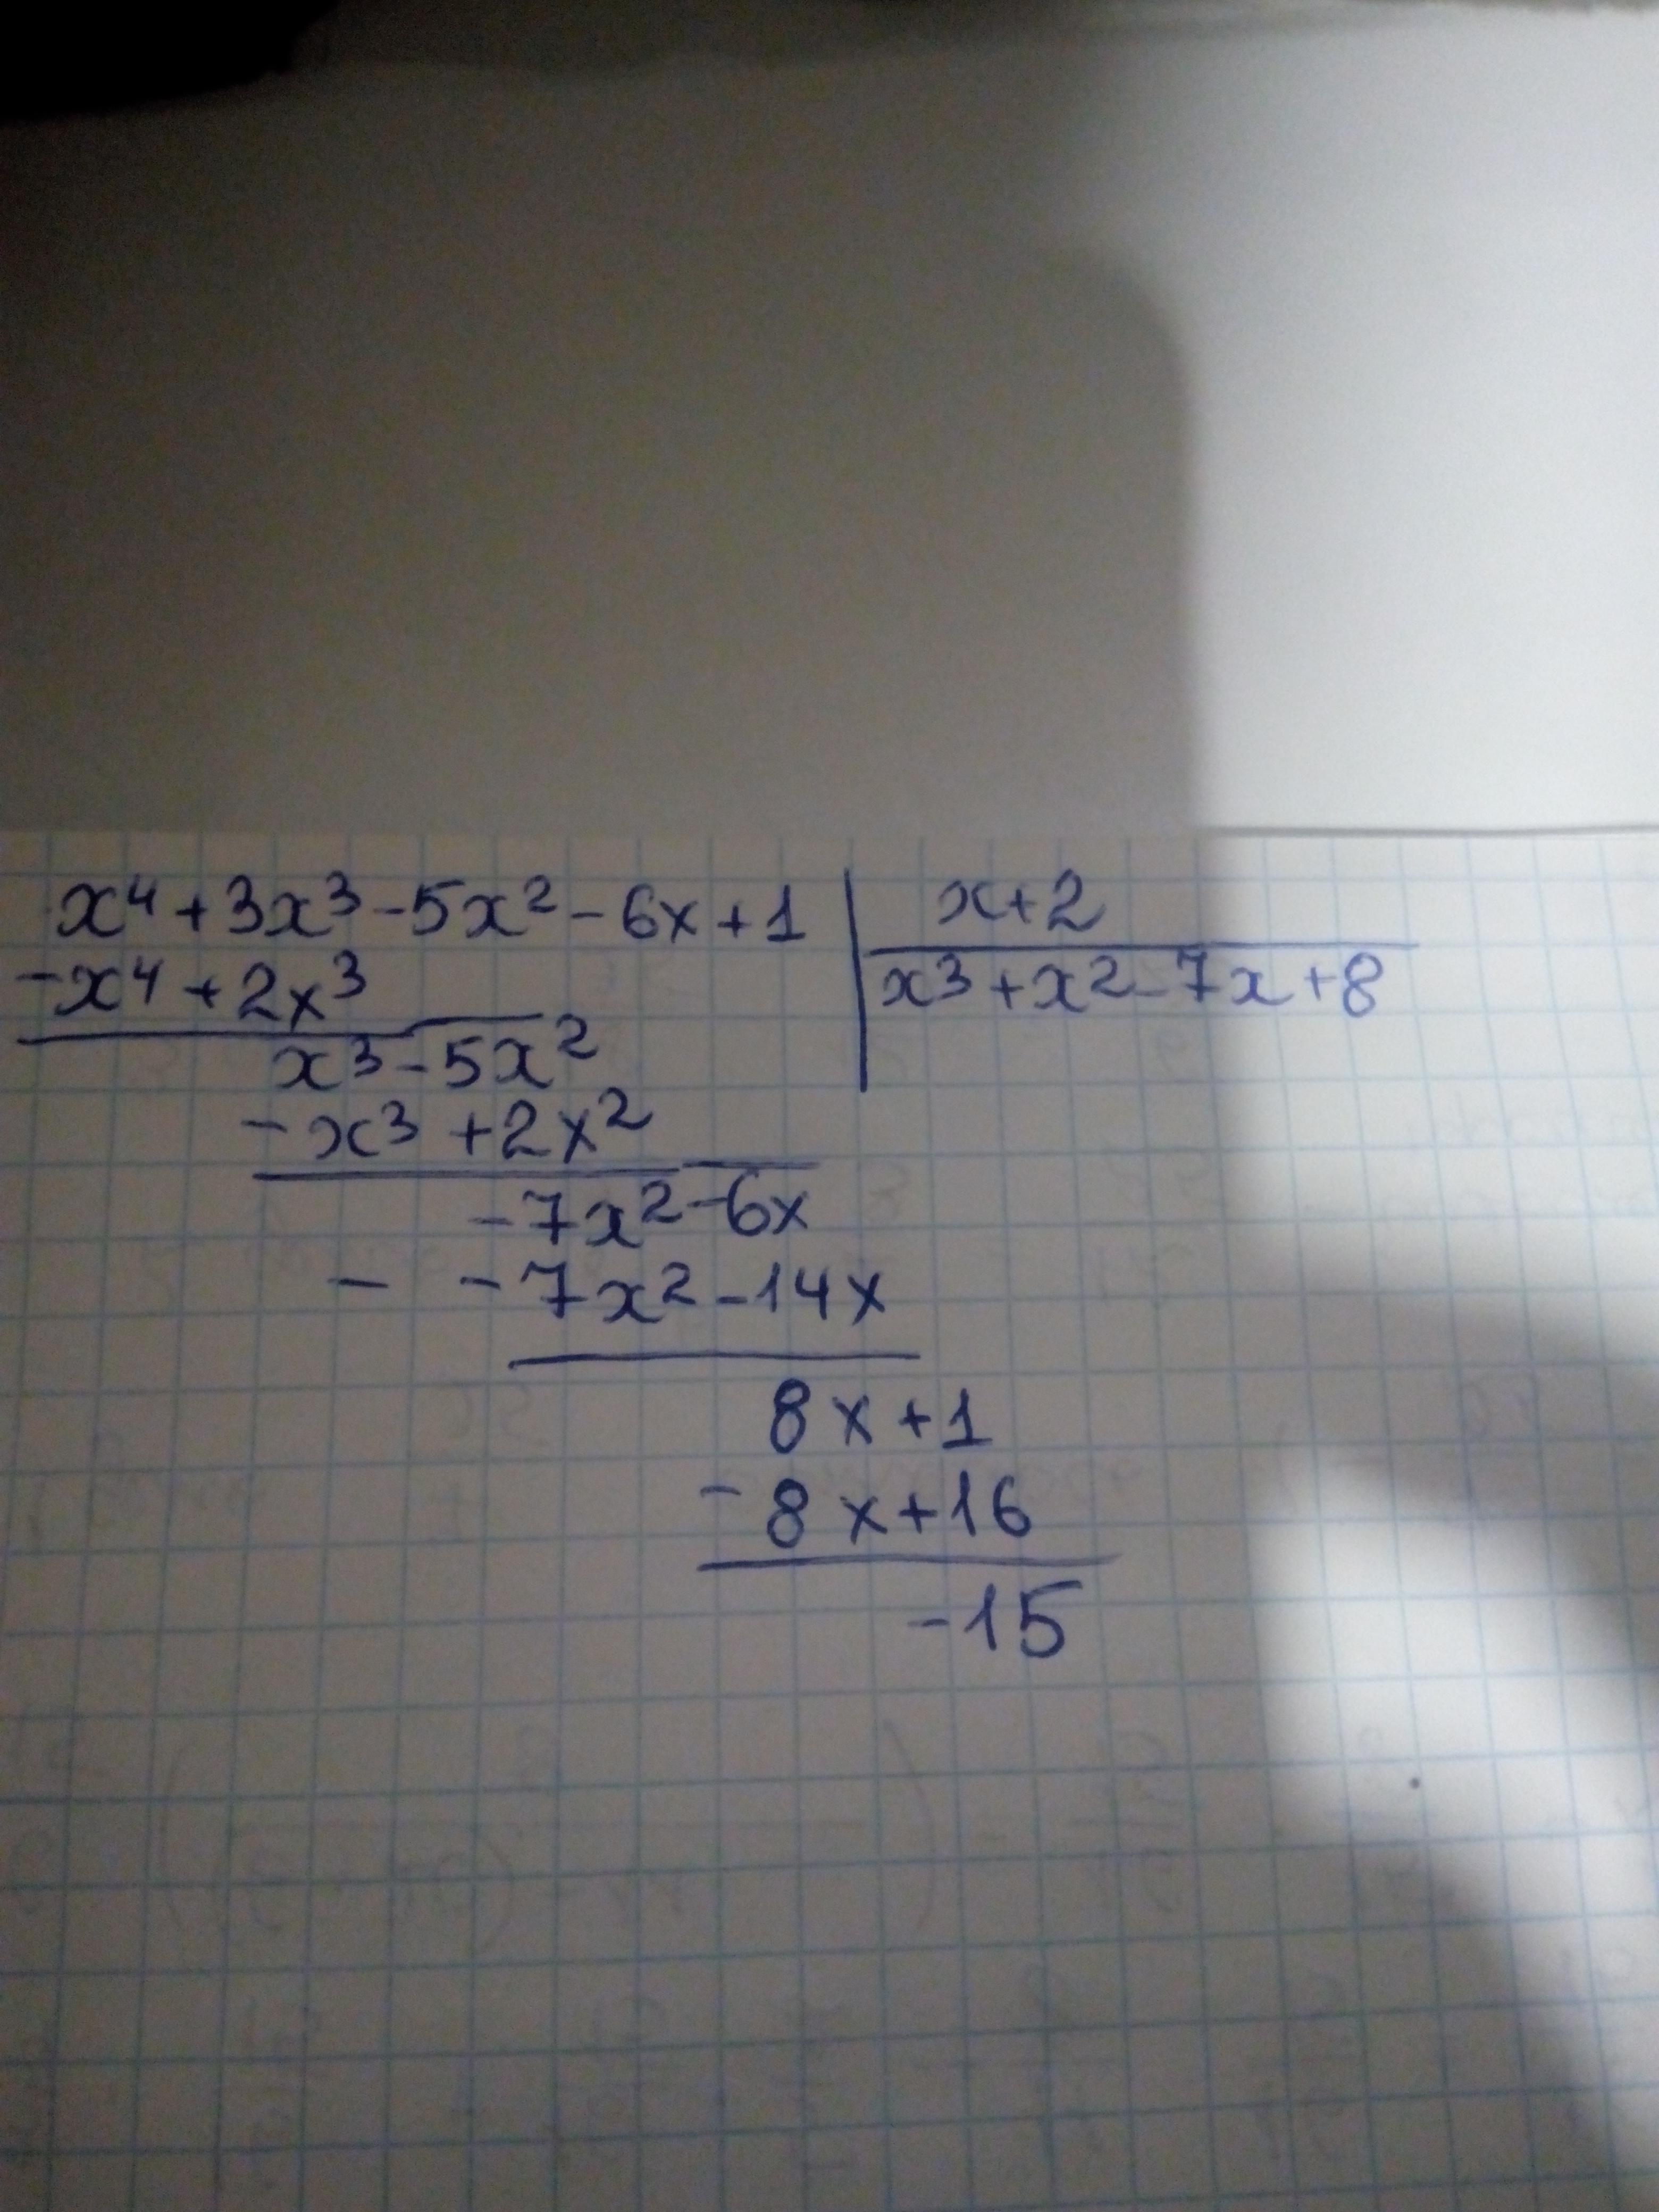 x⁴+3x³-5x²-6x+1 | x+2
-x⁴+2x³ | x³+x²-7x+8
x³-5x²
-x³+2x²
-7x²-6x
- -7x²-14x
8x+1
-8x+16
-15